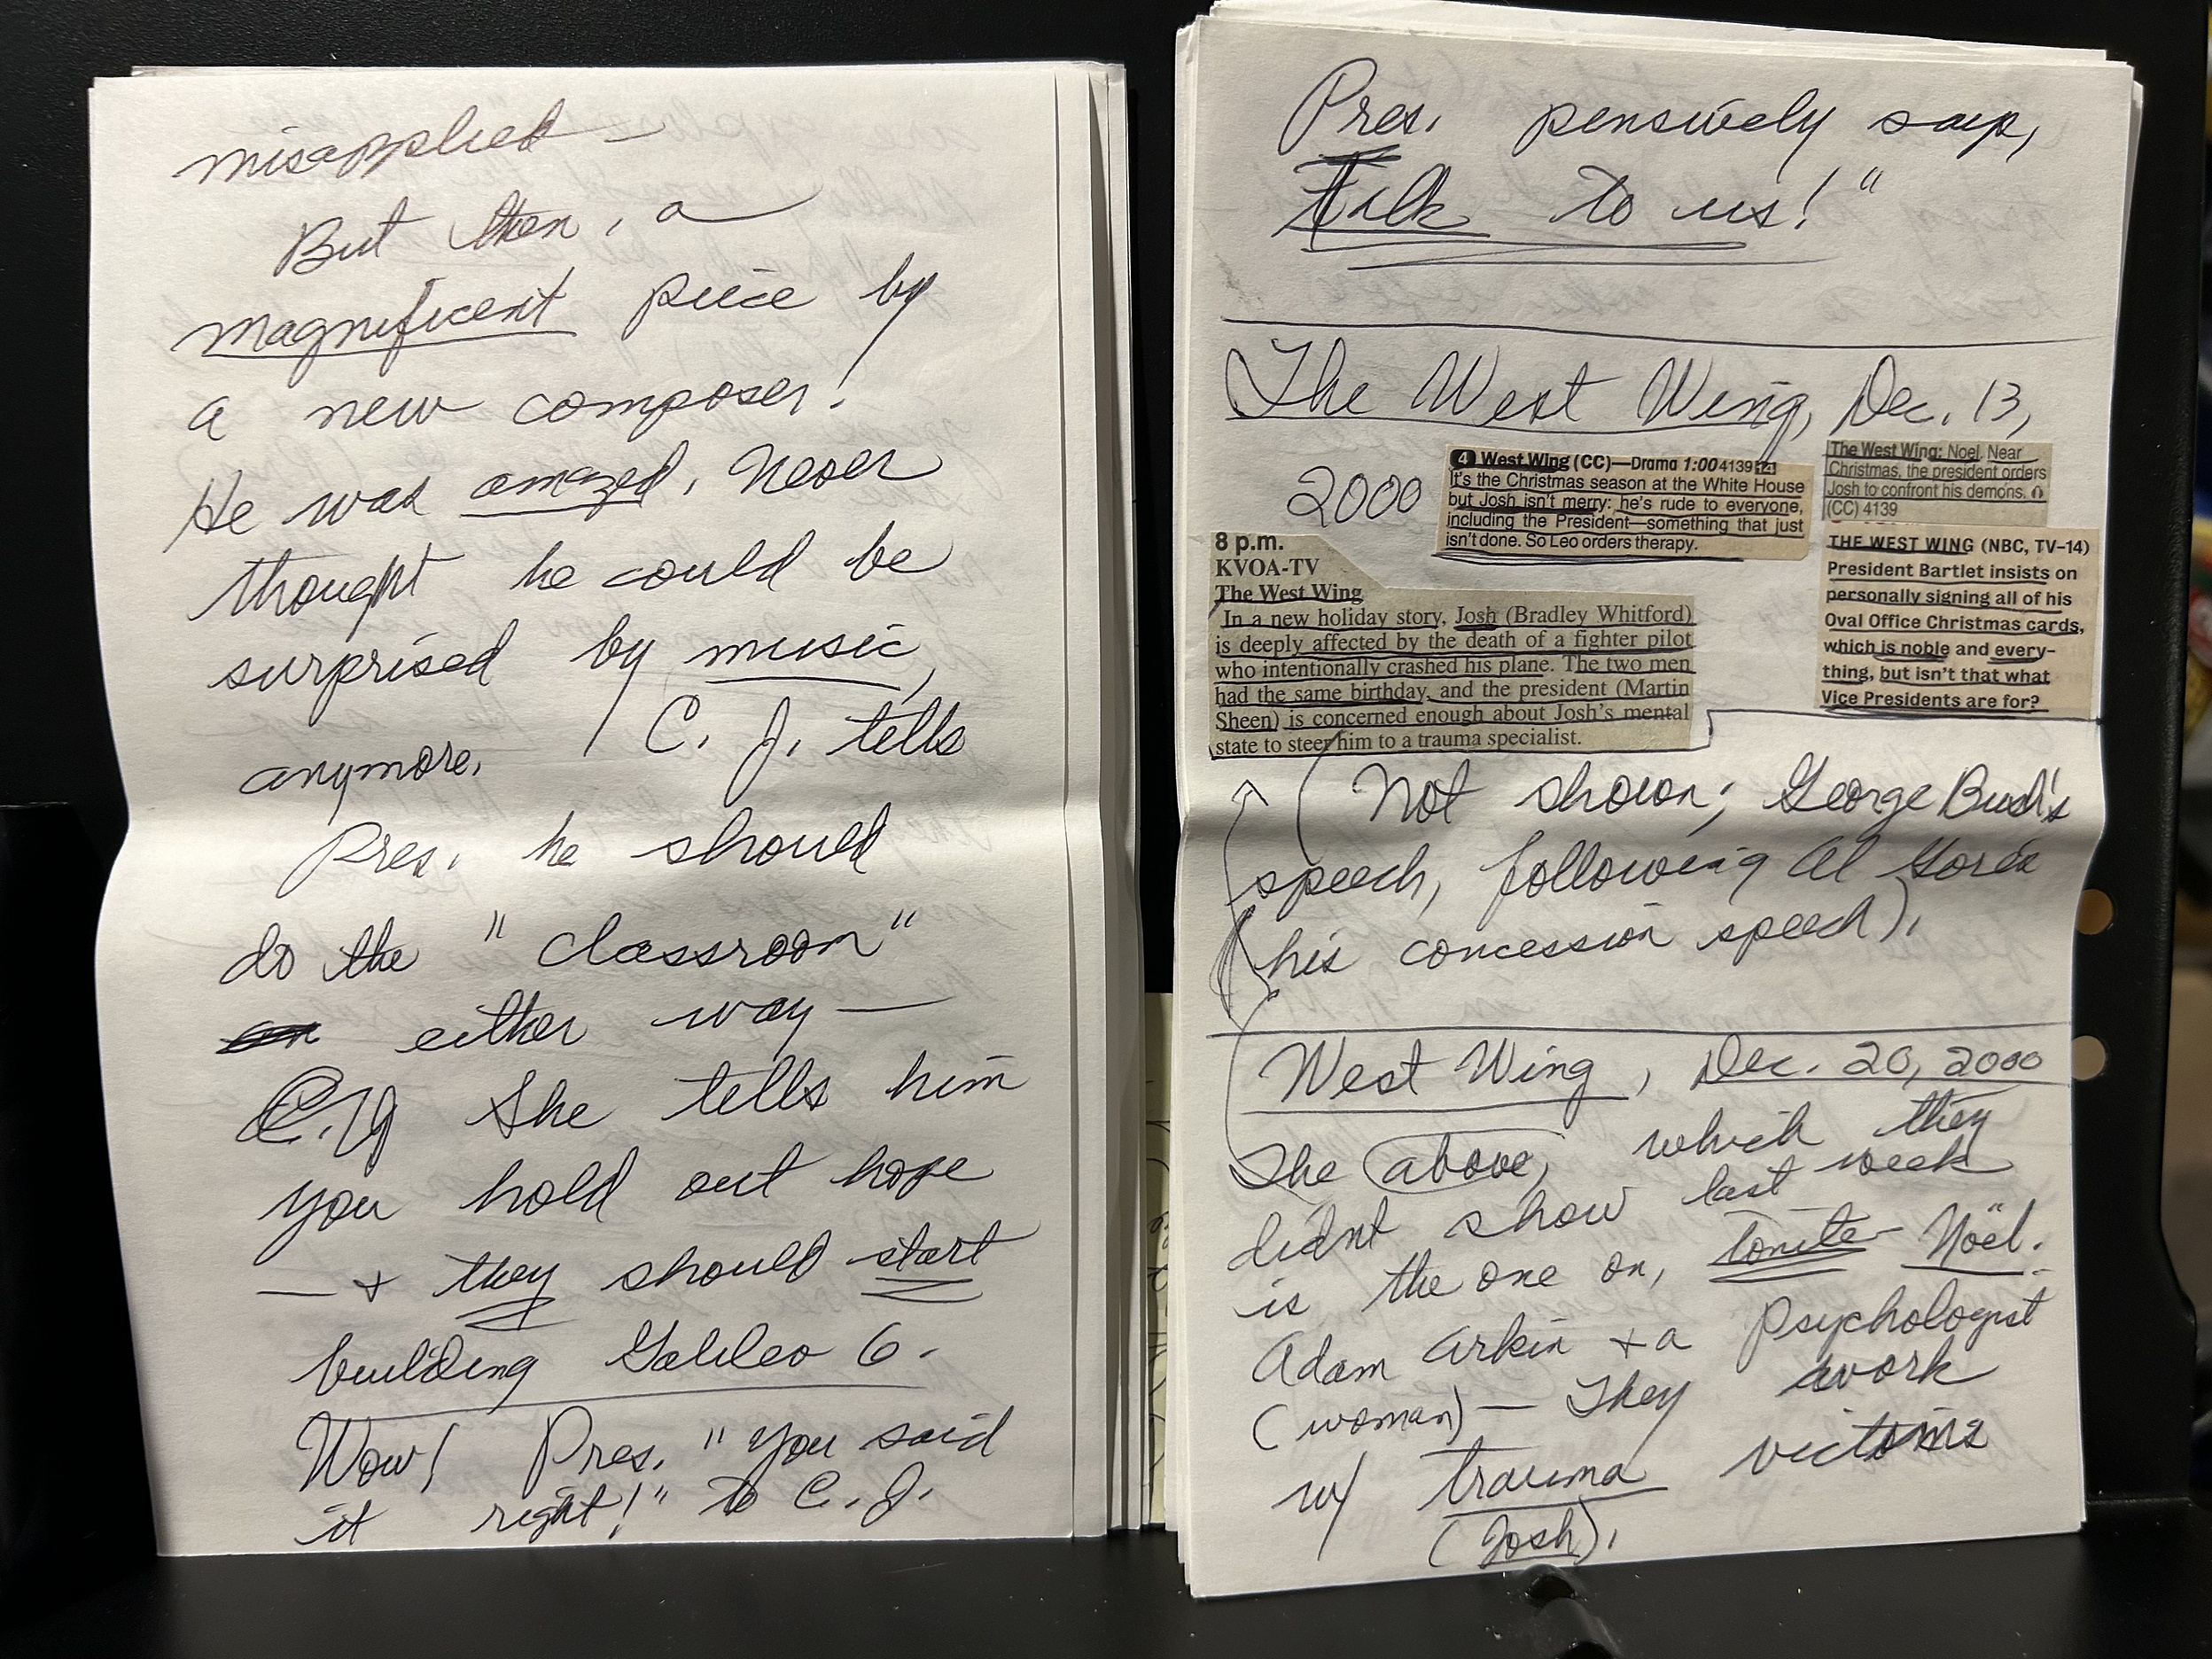 misapplied —
But then, a
magnificent piece by
a new composer!
He was amazed. Never
thought he could be
surprised by music,
anymore. / C. J. tells
Pres. he should
do the "classroom"
either way —
C.J. She tells him
you hold out hope
— + they should start
building Galileo 6.
Wow! Pres. "You said
it right!" to C. J.
Pres. pensively says,
Talk to us!"
The West Wing, Dec. 13,
2000
4 West Wing (CC)—Drama 1:00 4139 14
It's the Christmas season at the White House
but Josh isn't merry: he's rude to everyone,
including the President—something that just
isn't done. So Leo orders therapy.
The West Wing: Noel. Near
Christmas, the president orders
Josh to confront his demons.
(CC) 4139
8 p.m.
KVOA-TV
The West Wing
In a new holiday story, Josh (Bradley Whitford)
is deeply affected by the death of a fighter pilot
who intentionally crashed his plane. The two men
had the same birthday, and the president (Martin
Sheen) is concerned enough about Josh's mental
state to steer him to a trauma specialist.
THE WEST WING (NBC, TV-14)
President Bartlet insists on
personally signing all of his
Oval Office Christmas cards,
which is noble and every-
thing, but isn't that what
Vice Presidents are for?
(Not shown; George Bush's
speech, following Al Gore's
his concession speech).
West Wing, Dec. 20, 2000
The above, which they
didnt show last week
is the one on, tonite - Nöel.
Adam Arkin + a Psychologist
(woman) — They work
w/ trauma victims
(Josh).